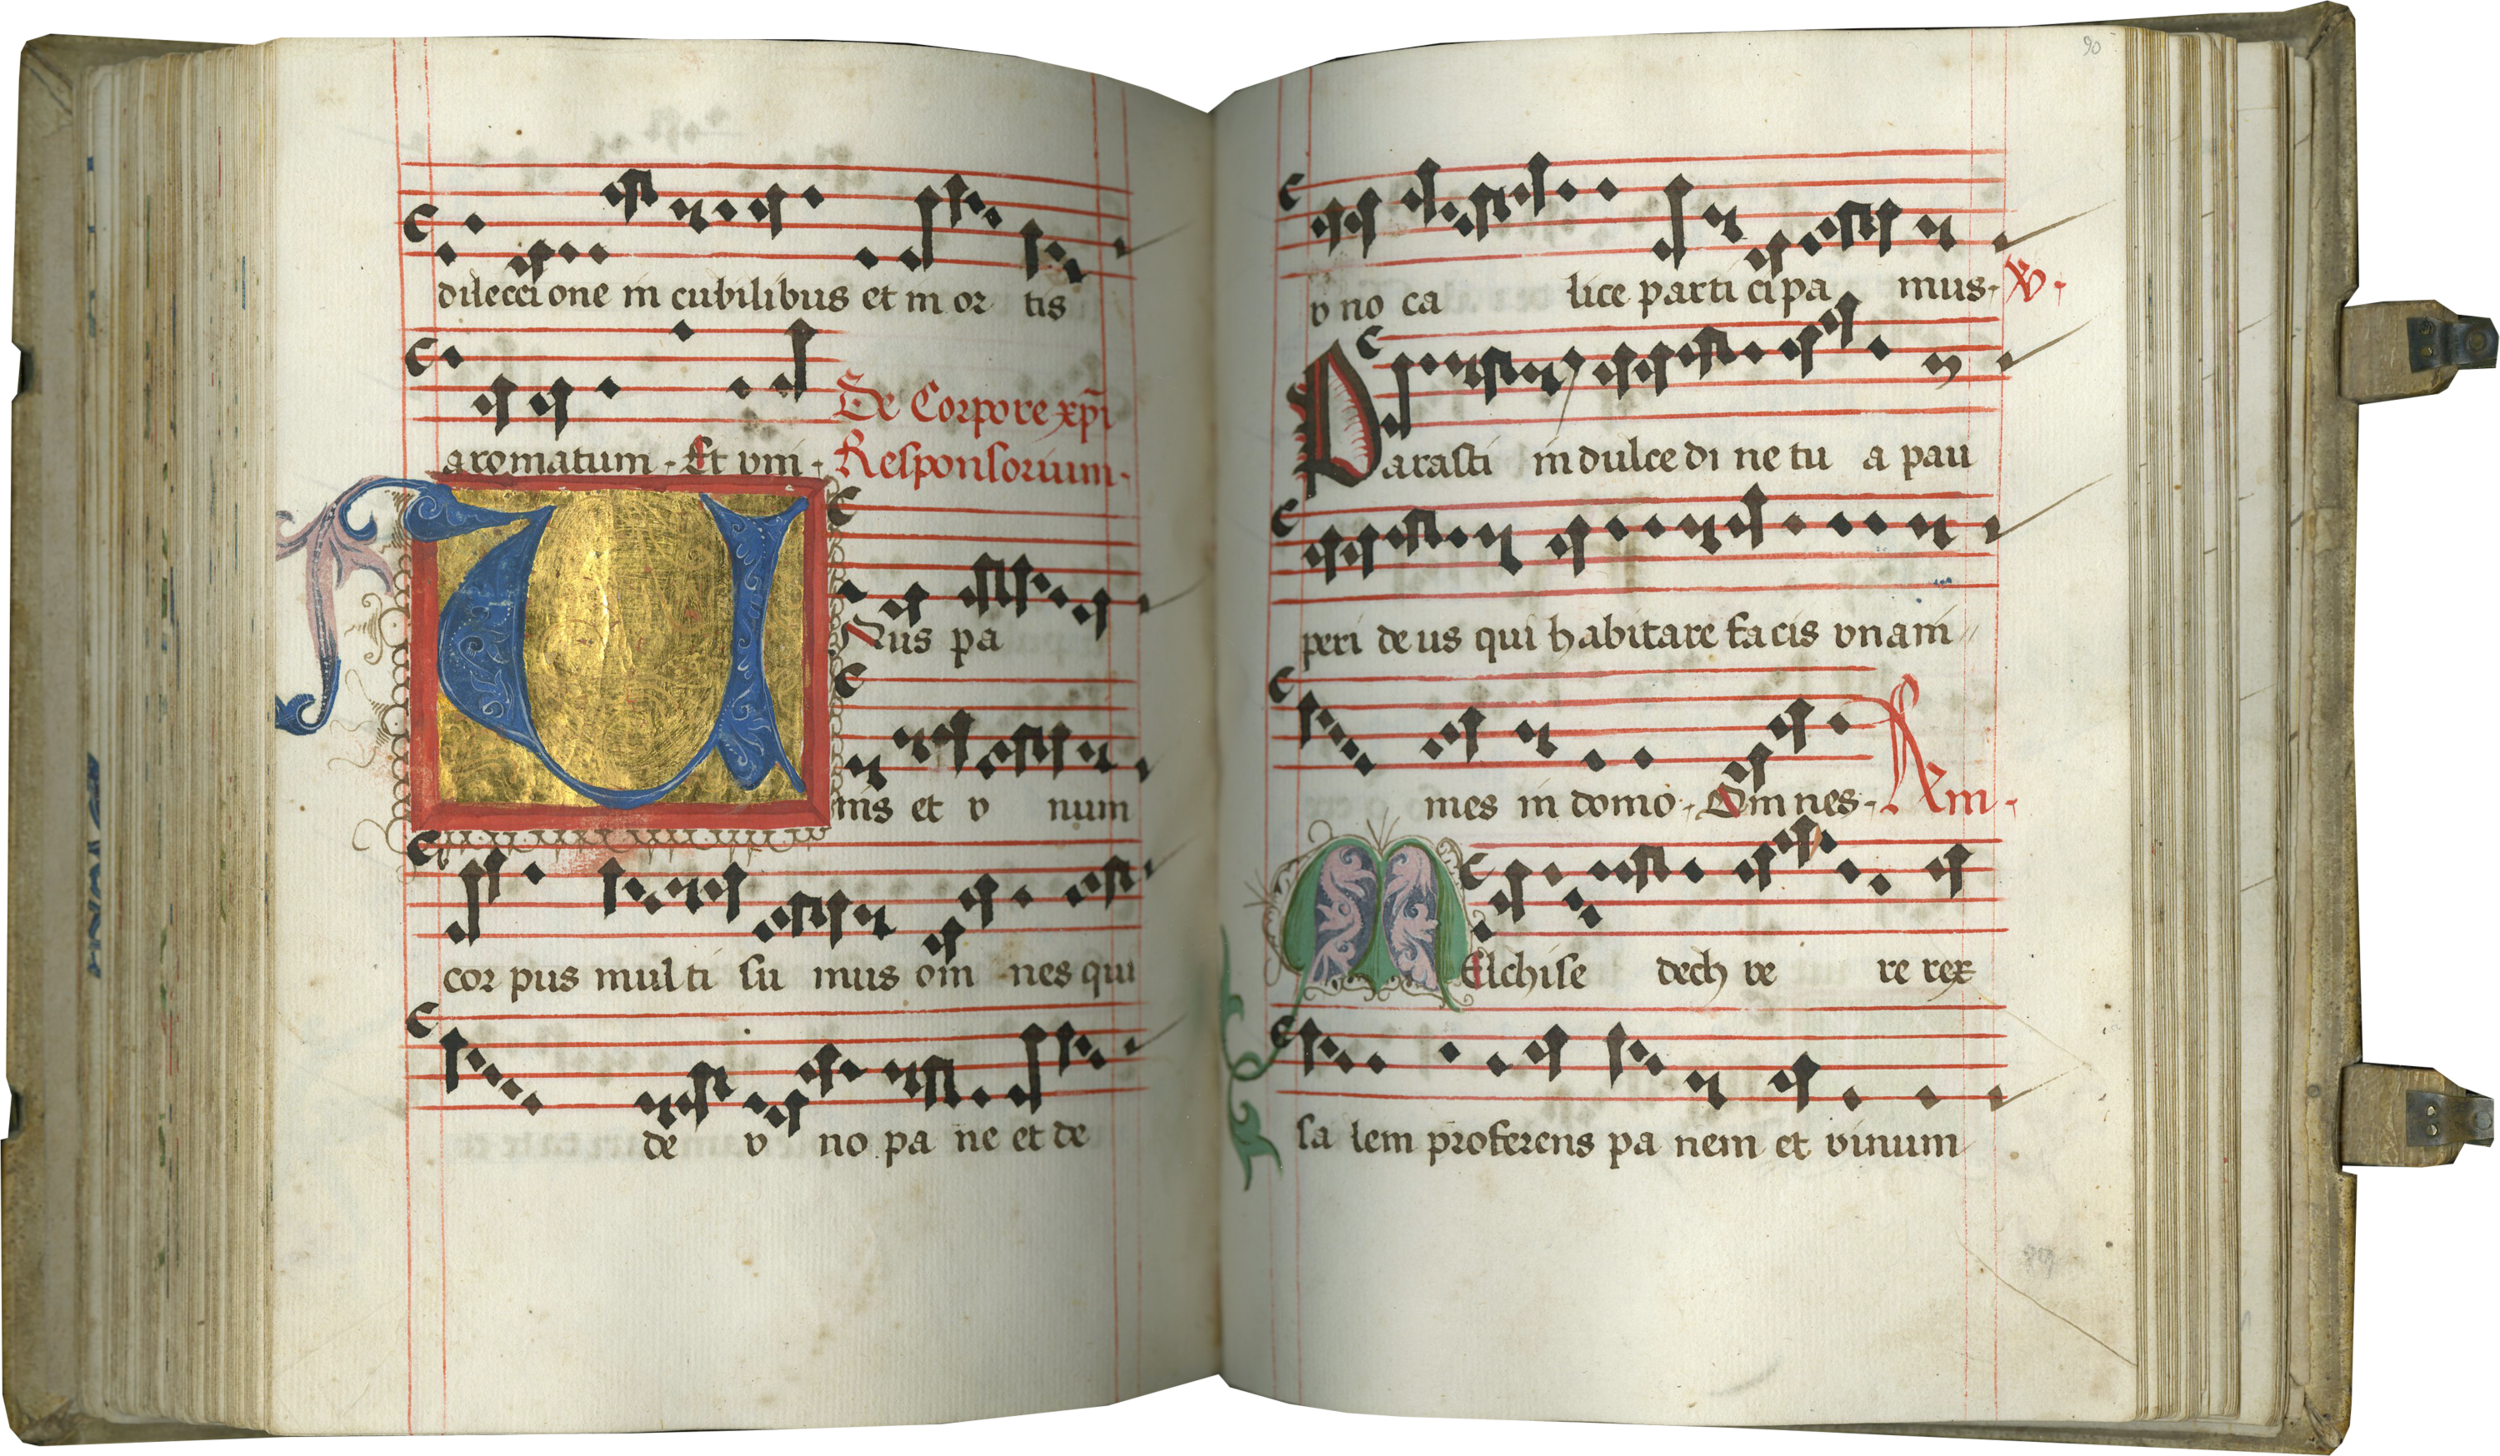 dileccione in cubilibus et in or tis
aromatum. Et vni.
De Corpore xpi
Responsorium.
UNus pa
nis et v num
cor pus multi su mus om nes qui
de v no pa ne et de
90
v no ca lice parti cipa mus. V.
Parasti in dulce di ne tu a pau
peri deus qui habitare facis vnani
mes in domo. Omnes. Am.
MElchise dech ve re rex
sa lem proferens pa nem et vinum